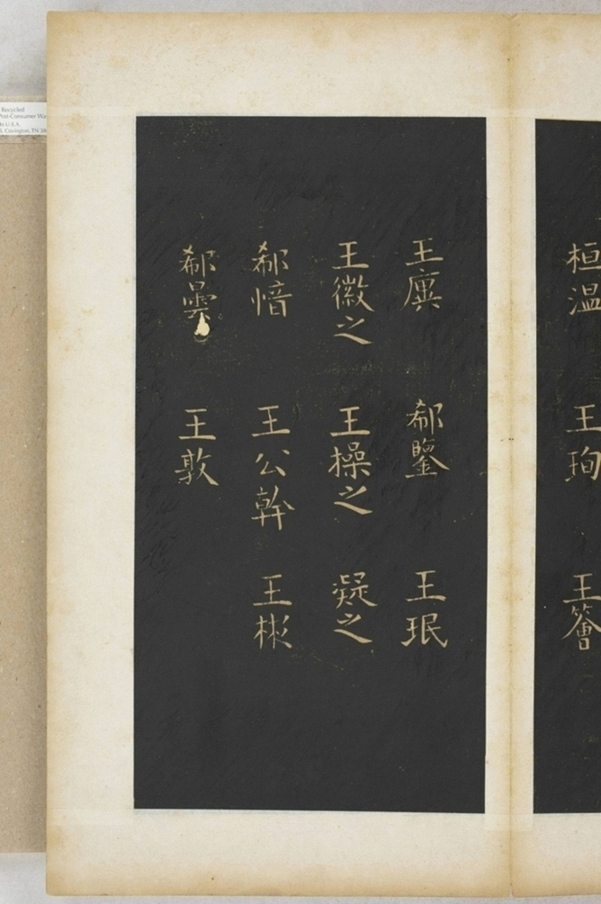 桓温 王珣 王薈
王廙 郗鑒 王珉
王徽之 王操之 凝之
郗愔 王公幹 王彬
郗曇 王敦
Recycled
Post-Consumer